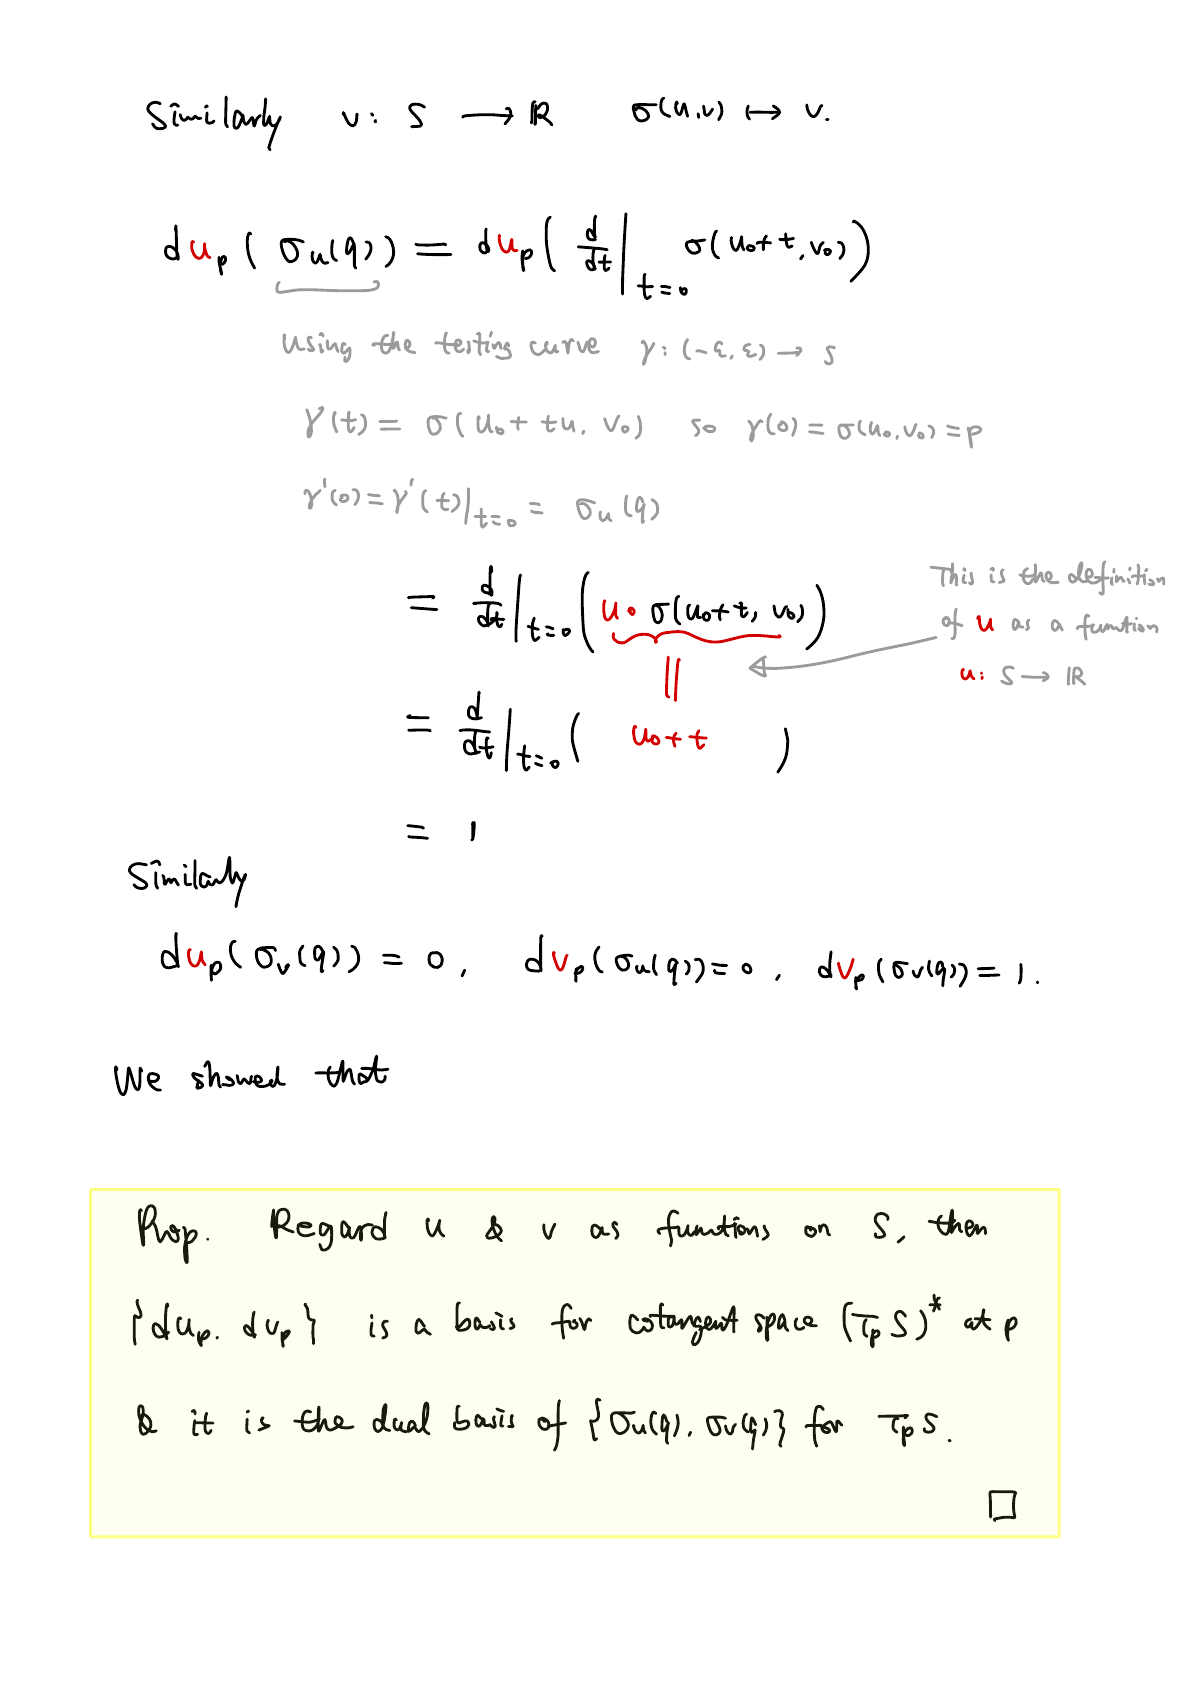 Similarly v: S ⟶ ℝ σ(u,v) ↦ v.
du_p(σ_u(q)) = du_p(d/dt|_{t=0} σ(u₀+t, v₀))
Using the testing curve γ: (-ε, ε) → S
γ(t) = σ(u₀+tu, v₀) so γ(0) = σ(u₀,v₀) = p
γ'(0) = γ'(t)|_{t=0} = σ_u(q)
= d/dt|_{t=0} (u∘σ(u₀+t, v₀))
This is the definition
of u as a function
u: S → ℝ
||
= d/dt|_{t=0} ( u₀+t )
= 1
Similarly
du_p(σ_v(q)) = 0, dv_p(σ_u(q)) = 0, dv_p(σ_v(q)) = 1.
We showed that
Prop. Regard u & v as functions on S, then
{du_p, dv_p} is a basis for cotangent space (T_pS)* at p
& it is the dual basis of {σ_u(q), σ_v(q)} for T_pS.
□